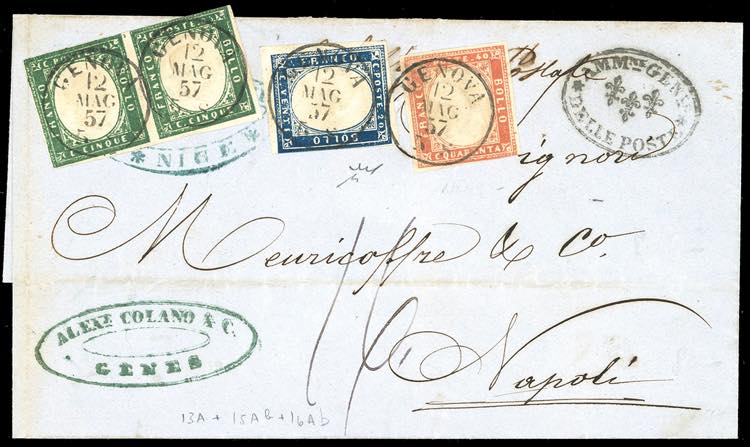 FRANCO
C. POSTE
BOLLO
C. CINQUE
GENOVA
12
MAG
57
FRANCO
BOLLO
C. CINQUE
GENOVA
12
MAG
57
FRANCO
C. POSTE 20
BOLLO
C. VENTI
12
MAG
57
BOLLO
C. QUARANTA
GENOVA
12
57
* NICE *
DELLE POSTE
Meuricoffre & Co.
Napoli
ALEXE COLANO & C.
GENES
13A + 15AB + 16Ab